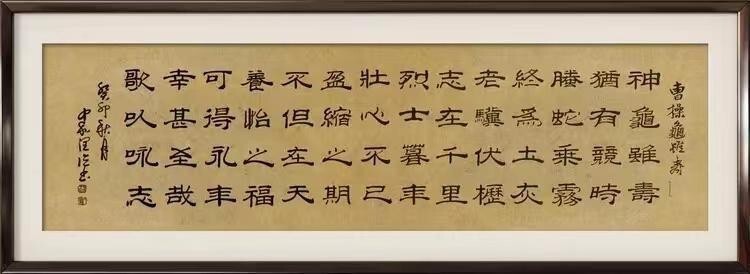 曹操龜雖寿
神龜雖壽
猶有競時
騰蛇乘霧
終為土灰
老驥伏櫪
志在千里
烈士暮年
壯心不已
盈縮之期
不但在天
養怡之福
可得永年
幸甚至哉
歌以咏志
癸卯秋月